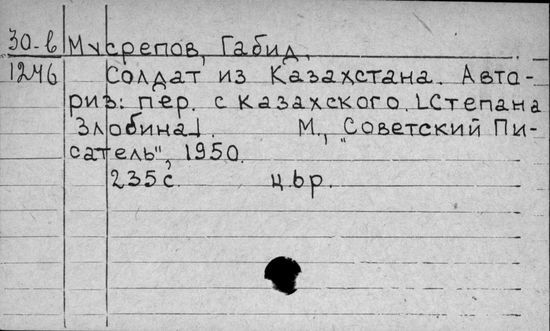 30-в Мусрепов, Габид.
1246 Солдат из Казахстана. Авто-
риз: пер. с казахского. [Степана
Злобина].   М., "Советский Пи-
сатель", 1950.
235 с.   ц. 6 р.